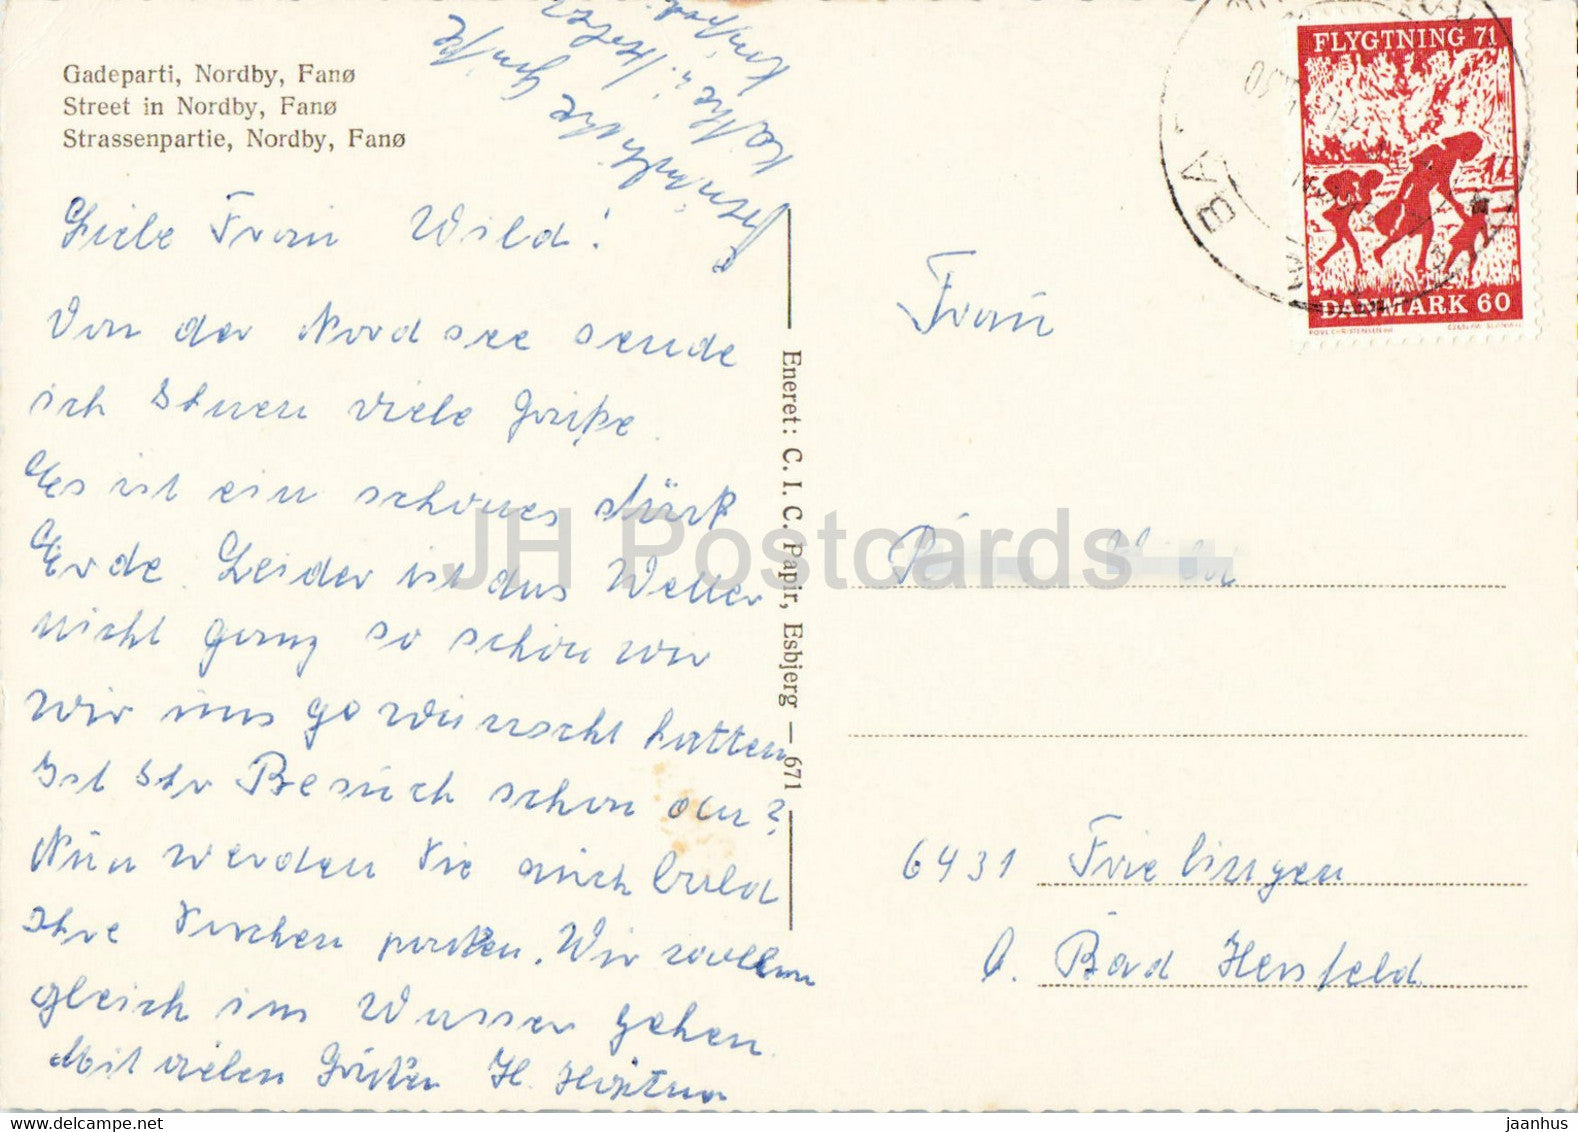 Gadeparti, Nordby, Fanø
Street in Nordby, Fanø
Strassenpartie, Nordby, Fanø
Liebe Frau Wild!
Von der Nordsee sende
ich Ihnen viele Grüße.
Es ist ein schönes Stück
Erde. Leider ist das Wetter
nicht ganz so schön wie
wir uns gewünscht hatten
Ist Ihr Besuch schon da?
Nun werden Sie auch bald
Ihre Sachen packen. Wir wollen
gleich ins Wasser gehen
Mit vielen Grüßen H.
Herzliche Grüße
Käthe
Eneret: C. I. C. Papir, Esbjerg — 671
FLYGTNING 71
DANMARK 60
POVL CHRISTENSEN
Frau
6431 Frielingen
b. Bad Hersfeld
JH Postcards
jaanhus @ delcampe.net